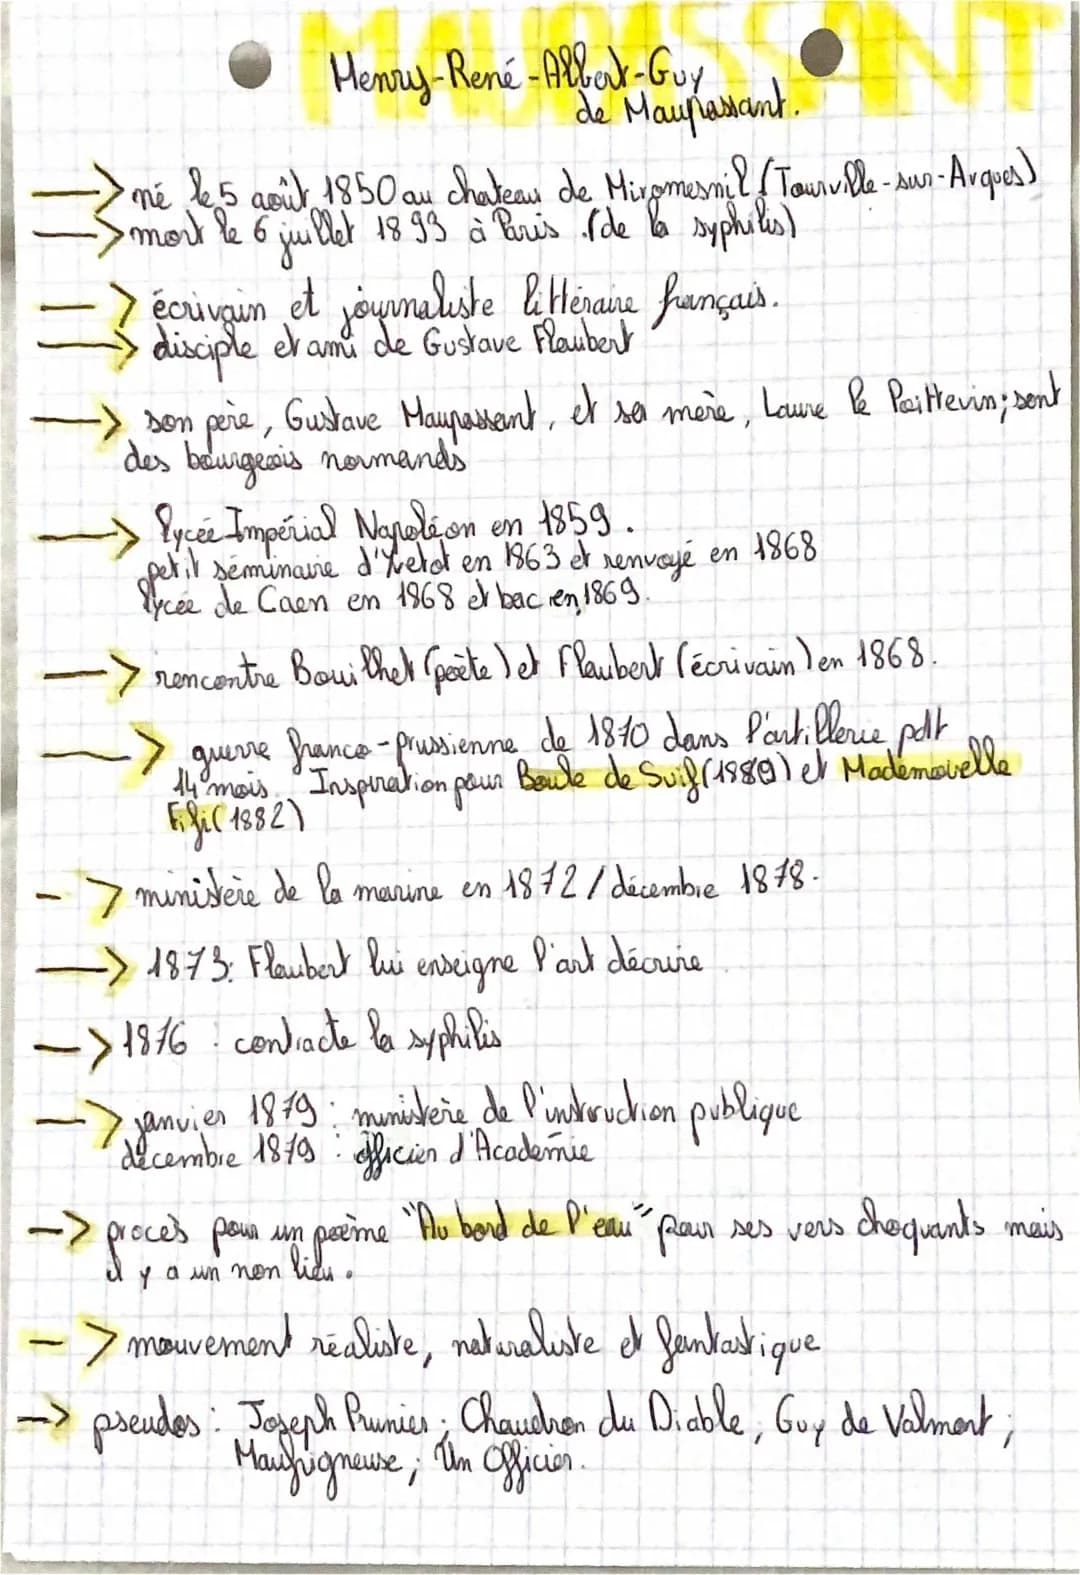 MAUPASSANT
Henry-René-Albert-Guy
de Maupassant.
—> né le 5 août 1850 au chateau de Miromesnil (Tourville-sur-Arques)
—> mort le 6 juillet 1893 à Paris. (de la syphilis)
—> écrivain et journaliste littéraire français.
—> disciple et ami de Gustave Flaubert
—> son père, Gustave Maupassant, et sa mère, Laure le Poittevin; sont
des bourgeois normands
—> lycée Impérial Napoléon en 1859.
petit séminaire d'Yvetot en 1863 et renvoyé en 1868
lycée de Caen en 1868 et bac en 1869.
—> rencontre Bouilhet (poète) et Flaubert (écrivain) en 1868.
—> guerre franco-prussienne de 1870 dans l'artillerie pdt
14 mois. Inspiration pour Boule de Suif (1880) et Mademoiselle
Fifi (1882)
-> ministère de la marine en 1872/décembre 1878.
—> 1873: Flaubert lui enseigne l'art décrire
—> 1876 : contracte la syphilis
—> janvier 1879 : ministère de l'instruction publique
décembre 1879 : officier d'Académie
—> procès pour un poème "Au bord de l'eau" pour ses vers choquants mais
il y a un non lieu.
-> mouvement réaliste, naturaliste et fantastique
—> pseudos : Joseph Prunier ; Chaudron du Diable, Guy de Valmont ;
Maufrigneuse ; Un Officier.